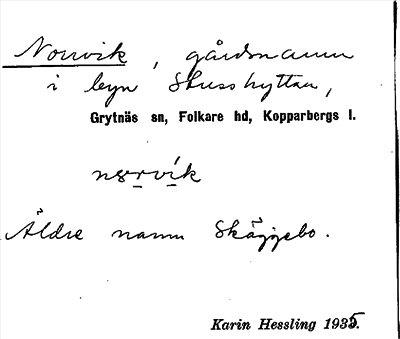 Norrvik, gårdsnamn
i byn Stusshyttan,
Grytnäs sn, Folkare hd, Kopparbergs l.
Äldre namn Skäggebo.
Karin Hessling 1935.